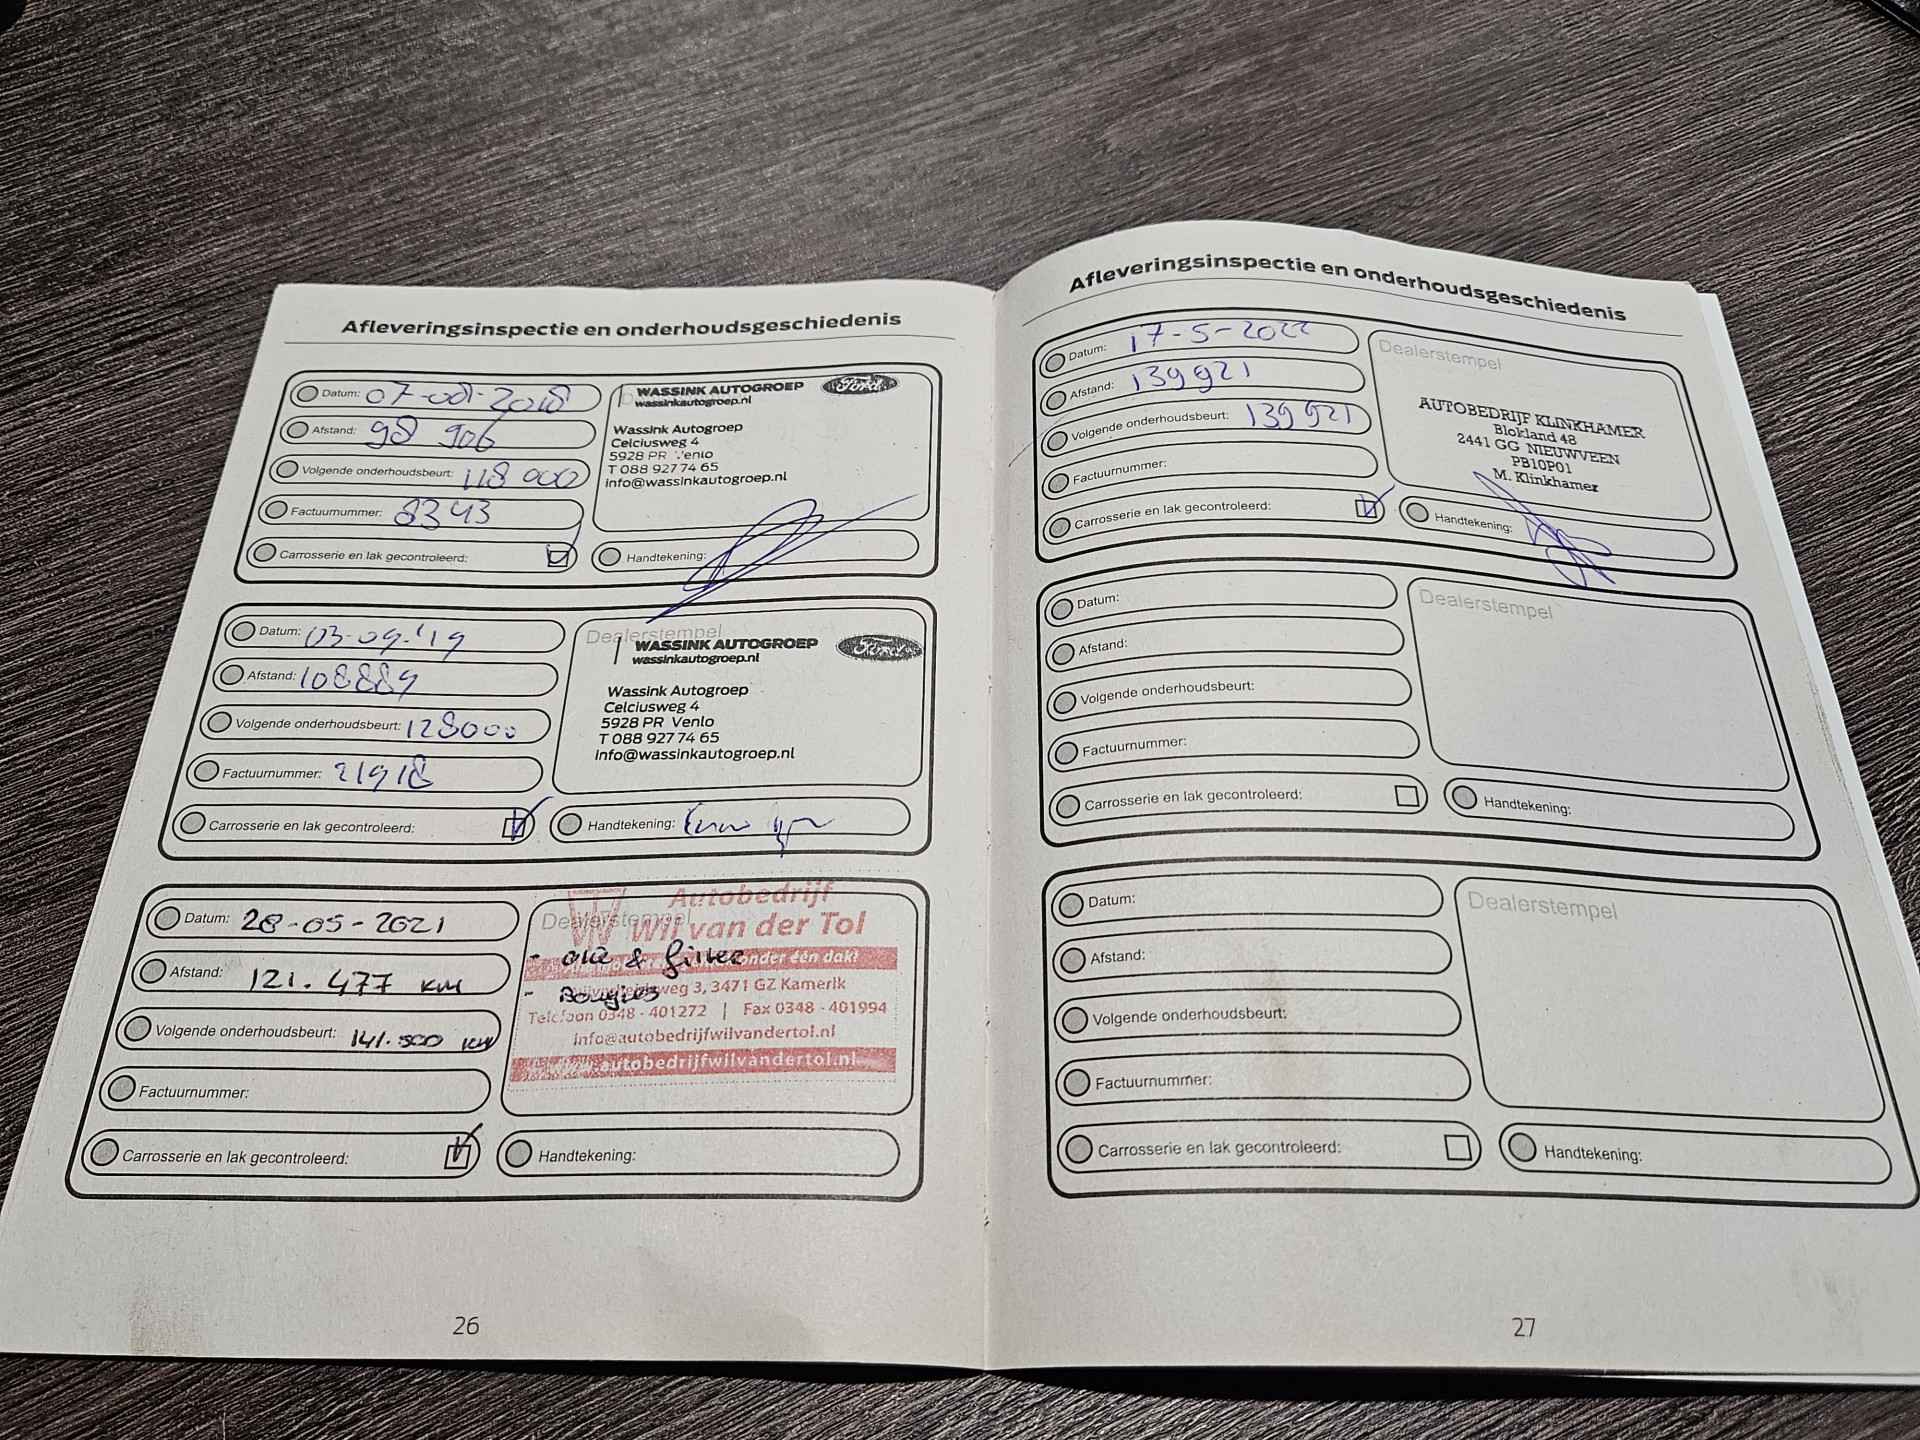 Afleveringsinspectie en onderhoudsgeschiedenis
Datum: 07-08-2018
Afstand: 98 906
Volgende onderhoudsbeurt: 118 000
Factuurnummer: 8343
Carrosserie en lak gecontroleerd:
WASSINK AUTOGROEP Ford
wassinkautogroep.nl
Wassink Autogroep
Celciusweg 4
5928 PR Venlo
T 088 927 74 65
info@wassinkautogroep.nl
Handtekening:
Datum: 03-09-'19
Afstand: 108889
Volgende onderhoudsbeurt: 128000
Factuurnummer: 21918
Carrosserie en lak gecontroleerd:
Dealerstempel
WASSINK AUTOGROEP Ford
wassinkautogroep.nl
Wassink Autogroep
Celciusweg 4
5928 PR Venlo
T 088 927 74 65
info@wassinkautogroep.nl
Handtekening:
Datum: 28-05-2021
Afstand: 121.477 km
Volgende onderhoudsbeurt: 141.500 km
Factuurnummer:
Carrosserie en lak gecontroleerd:
Autobedrijf
Dealerstempel
Wil van der Tol
- olie & filter
onder één dak!
- Bougies
weg 3, 3471 GZ Kamerik
Telefoon 0348 - 401272 | Fax 0348 - 401994
info@autobedrijfwilvandertol.nl
www.autobedrijfwilvandertol.nl
Handtekening:
26
Afleveringsinspectie en onderhoudsgeschiedenis
Datum: 17-5-2022
Afstand: 139921
Volgende onderhoudsbeurt: 139921
Factuurnummer:
Carrosserie en lak gecontroleerd:
Dealerstempel
AUTOBEDRIJF KLINKHAMER
Blokland 48
2441 GG NIEUWVEEN
PB10P01
M. Klinkhamer
Handtekening:
Datum:
Afstand:
Volgende onderhoudsbeurt:
Factuurnummer:
Carrosserie en lak gecontroleerd:
Dealerstempel
Handtekening:
Datum:
Afstand:
Volgende onderhoudsbeurt:
Factuurnummer:
Carrosserie en lak gecontroleerd:
Dealerstempel
Handtekening:
27